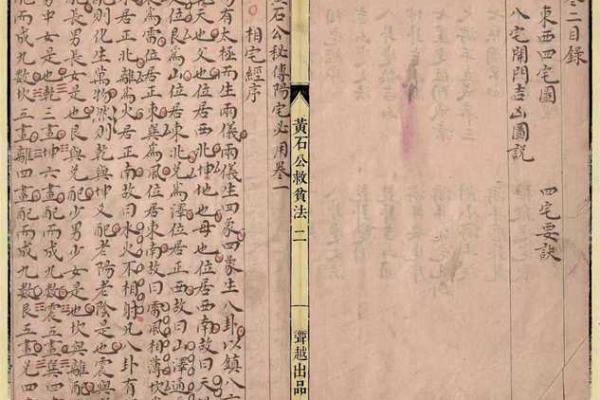 二目錄
東西四宅圖
八宅開門吉凶圖說 四宅要訣
黃石公救貧法 二
聲越出品
石公秘傳陽宅必用卷一
相宅經序
有太極而生兩儀兩儀生四象四象生八卦以鎮八
天也父也位居西北坤地也母也位居西南故曰天
位艮為山位居東北兌為澤位居正西故曰山澤通
震為雷位居正東巽為風位居東南故曰雷風相薄坎
水居正北離為火居正南故曰水火不相射凡八卦有
則化生萬物然則乾與坤又配老陽老陰是也震與
長男長女是也艮與兌配少男少女是也坎與離配
男中女是也乾三畫坤六畫配而成九數震五畫巽四
配而成九數坎五畫離四畫配而成九數艮五畫兌四